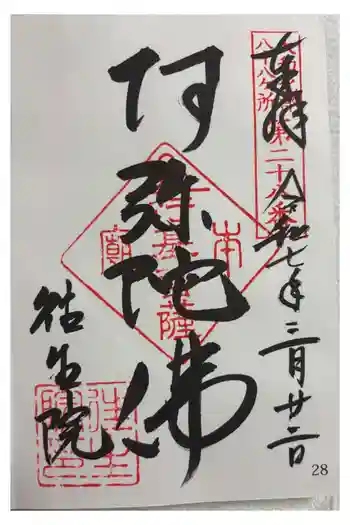 奉拝
令和七年三月廿二日
八十八ヶ所第二十八番
阿弥陀佛
本
行基菩薩
廟
往生院
28